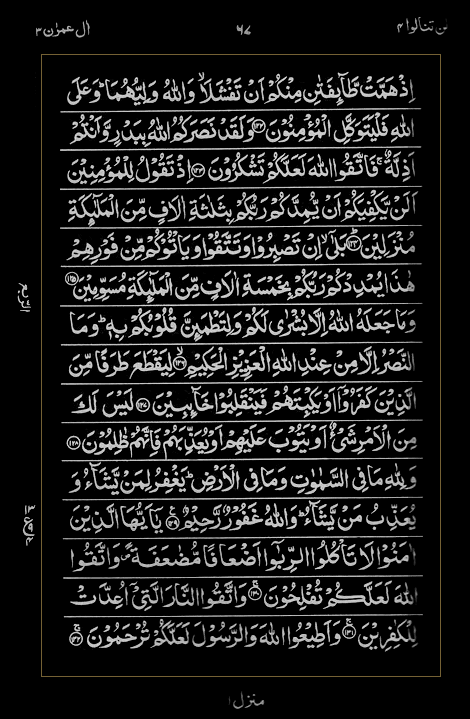 لن تنالوا ۴ ۶۷ ال عمرٰن ۳
اِذۡ هَمَّتۡ طَّآئِفَتٰنِ مِنۡكُمۡ اَنۡ تَفۡشَلَا ۙ وَاللّٰهُ وَلِيُّهُمَا ؕ وَعَلَى
اللّٰهِ فَلۡيَتَوَكَّلِ الۡمُؤۡمِنُوۡنَ ﴿۱۲۲﴾ وَلَقَدۡ نَصَرَكُمُ اللّٰهُ بِبَدۡرٍ وَّاَنۡتُمۡ
اَذِلَّةٌ ۚ فَاتَّقُوا اللّٰهَ لَعَلَّكُمۡ تَشۡكُرُوۡنَ ﴿۱۲۳﴾ اِذۡ تَقُوۡلُ لِلۡمُؤۡمِنِيۡنَ
اَلَنۡ يَّكۡفِيَكُمۡ اَنۡ يُّمِدَّكُمۡ رَبُّكُمۡ بِثَلٰثَةِ اٰلَافٍ مِّنَ الۡمَلٰٓئِكَةِ
مُنۡزَلِيۡنَ ﴿۱۲۴﴾ بَلٰٓى ۙ اِنۡ تَصۡبِرُوۡا وَتَتَّقُوۡا وَيَاۡتُوۡكُمۡ مِّنۡ فَوۡرِهِمۡ
هٰذَا يُمۡدِدۡكُمۡ رَبُّكُمۡ بِخَمۡسَةِ اٰلَافٍ مِّنَ الۡمَلٰٓئِكَةِ مُسَوِّمِيۡنَ ﴿۱۲۵﴾
الرّبع
وَمَا جَعَلَهُ اللّٰهُ اِلَّا بُشۡرٰى لَكُمۡ وَلِتَطۡمَئِنَّ قُلُوۡبُكُمۡ بِهٖ ؕ وَمَا
النَّصۡرُ اِلَّا مِنۡ عِنۡدِ اللّٰهِ الۡعَزِيۡزِ الۡحَكِيۡمِ ۙ ﴿۱۲۶﴾ لِيَقۡطَعَ طَرَفًا مِّنَ
الَّذِيۡنَ كَفَرُوۡۤا اَوۡ يَكۡبِتَهُمۡ فَيَنۡقَلِبُوۡا خَآئِبِيۡنَ ﴿۱۲۷﴾ لَيۡسَ لَكَ
مِنَ الۡاَمۡرِ شَىۡءٌ اَوۡ يَتُوۡبَ عَلَيۡهِمۡ اَوۡ يُعَذِّبَهُمۡ فَاِنَّهُمۡ ظٰلِمُوۡنَ ﴿۱۲۸﴾
وَلِلّٰهِ مَا فِى السَّمٰوٰتِ وَمَا فِى الۡاَرۡضِ ؕ يَغۡفِرُ لِمَنۡ يَّشَآءُ وَ
يُعَذِّبُ مَنۡ يَّشَآءُ ؕ وَاللّٰهُ غَفُوۡرٌ رَّحِيۡمٌ ﴿۱۲۹﴾ يٰۤاَيُّهَا الَّذِيۡنَ
اٰمَنُوۡا لَا تَاۡكُلُوا الرِّبٰٓوا اَضۡعَافًا مُّضٰعَفَةً ۖ وَاتَّقُوا
اللّٰهَ لَعَلَّكُمۡ تُفۡلِحُوۡنَ ۚ ﴿۱۳۰﴾ وَاتَّقُوا النَّارَ الَّتِىۡۤ اُعِدَّتۡ
لِلۡكٰفِرِيۡنَ ۚ ﴿۱۳۱﴾ وَاَطِيۡعُوا اللّٰهَ وَالرَّسُوۡلَ لَعَلَّكُمۡ تُرۡحَمُوۡنَ ۚ ﴿۱۳۲﴾
منزل ۱